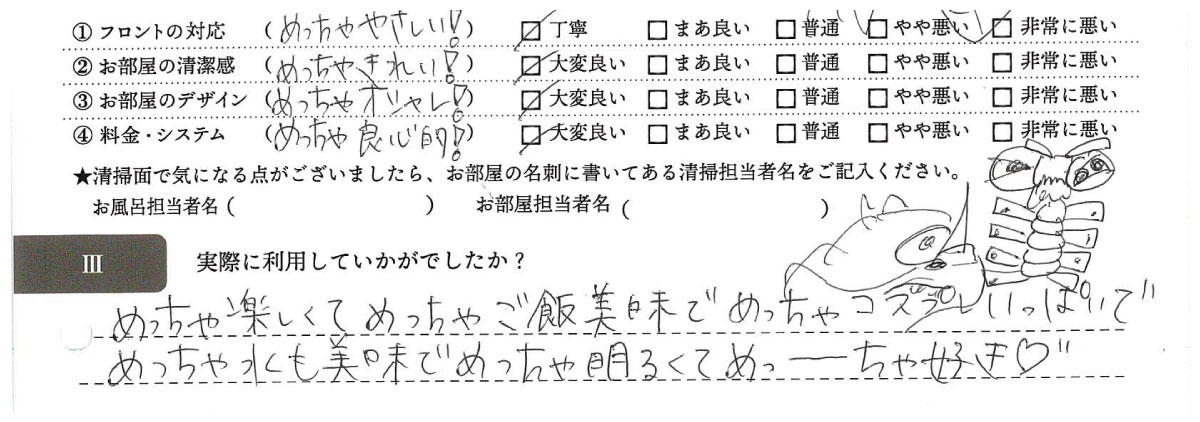 ① フロントの対応 （めっちゃやさしい!） ☑丁寧 □まあ良い □普通 □やや悪い □非常に悪い
② お部屋の清潔感 （めっちゃきれい!） ☑大変良い □まあ良い □普通 □やや悪い □非常に悪い
③ お部屋のデザイン （めっちゃオシャレ!） ☑大変良い □まあ良い □普通 □やや悪い □非常に悪い
④ 料金・システム （めっちゃ良心的!） ☑大変良い □まあ良い □普通 □やや悪い □非常に悪い
★清掃面で気になる点がございましたら、お部屋の名刺に書いてある清掃担当者名をご記入ください。
お風呂担当者名（ ） お部屋担当者名（ ）
Ⅲ 実際に利用していかがでしたか？
めっちゃ楽しくてめっちゃご飯美味でめっちゃコスプレいっぱいで
めっちゃ水も美味でめっちゃ明るくてめっーーちゃ好き♡